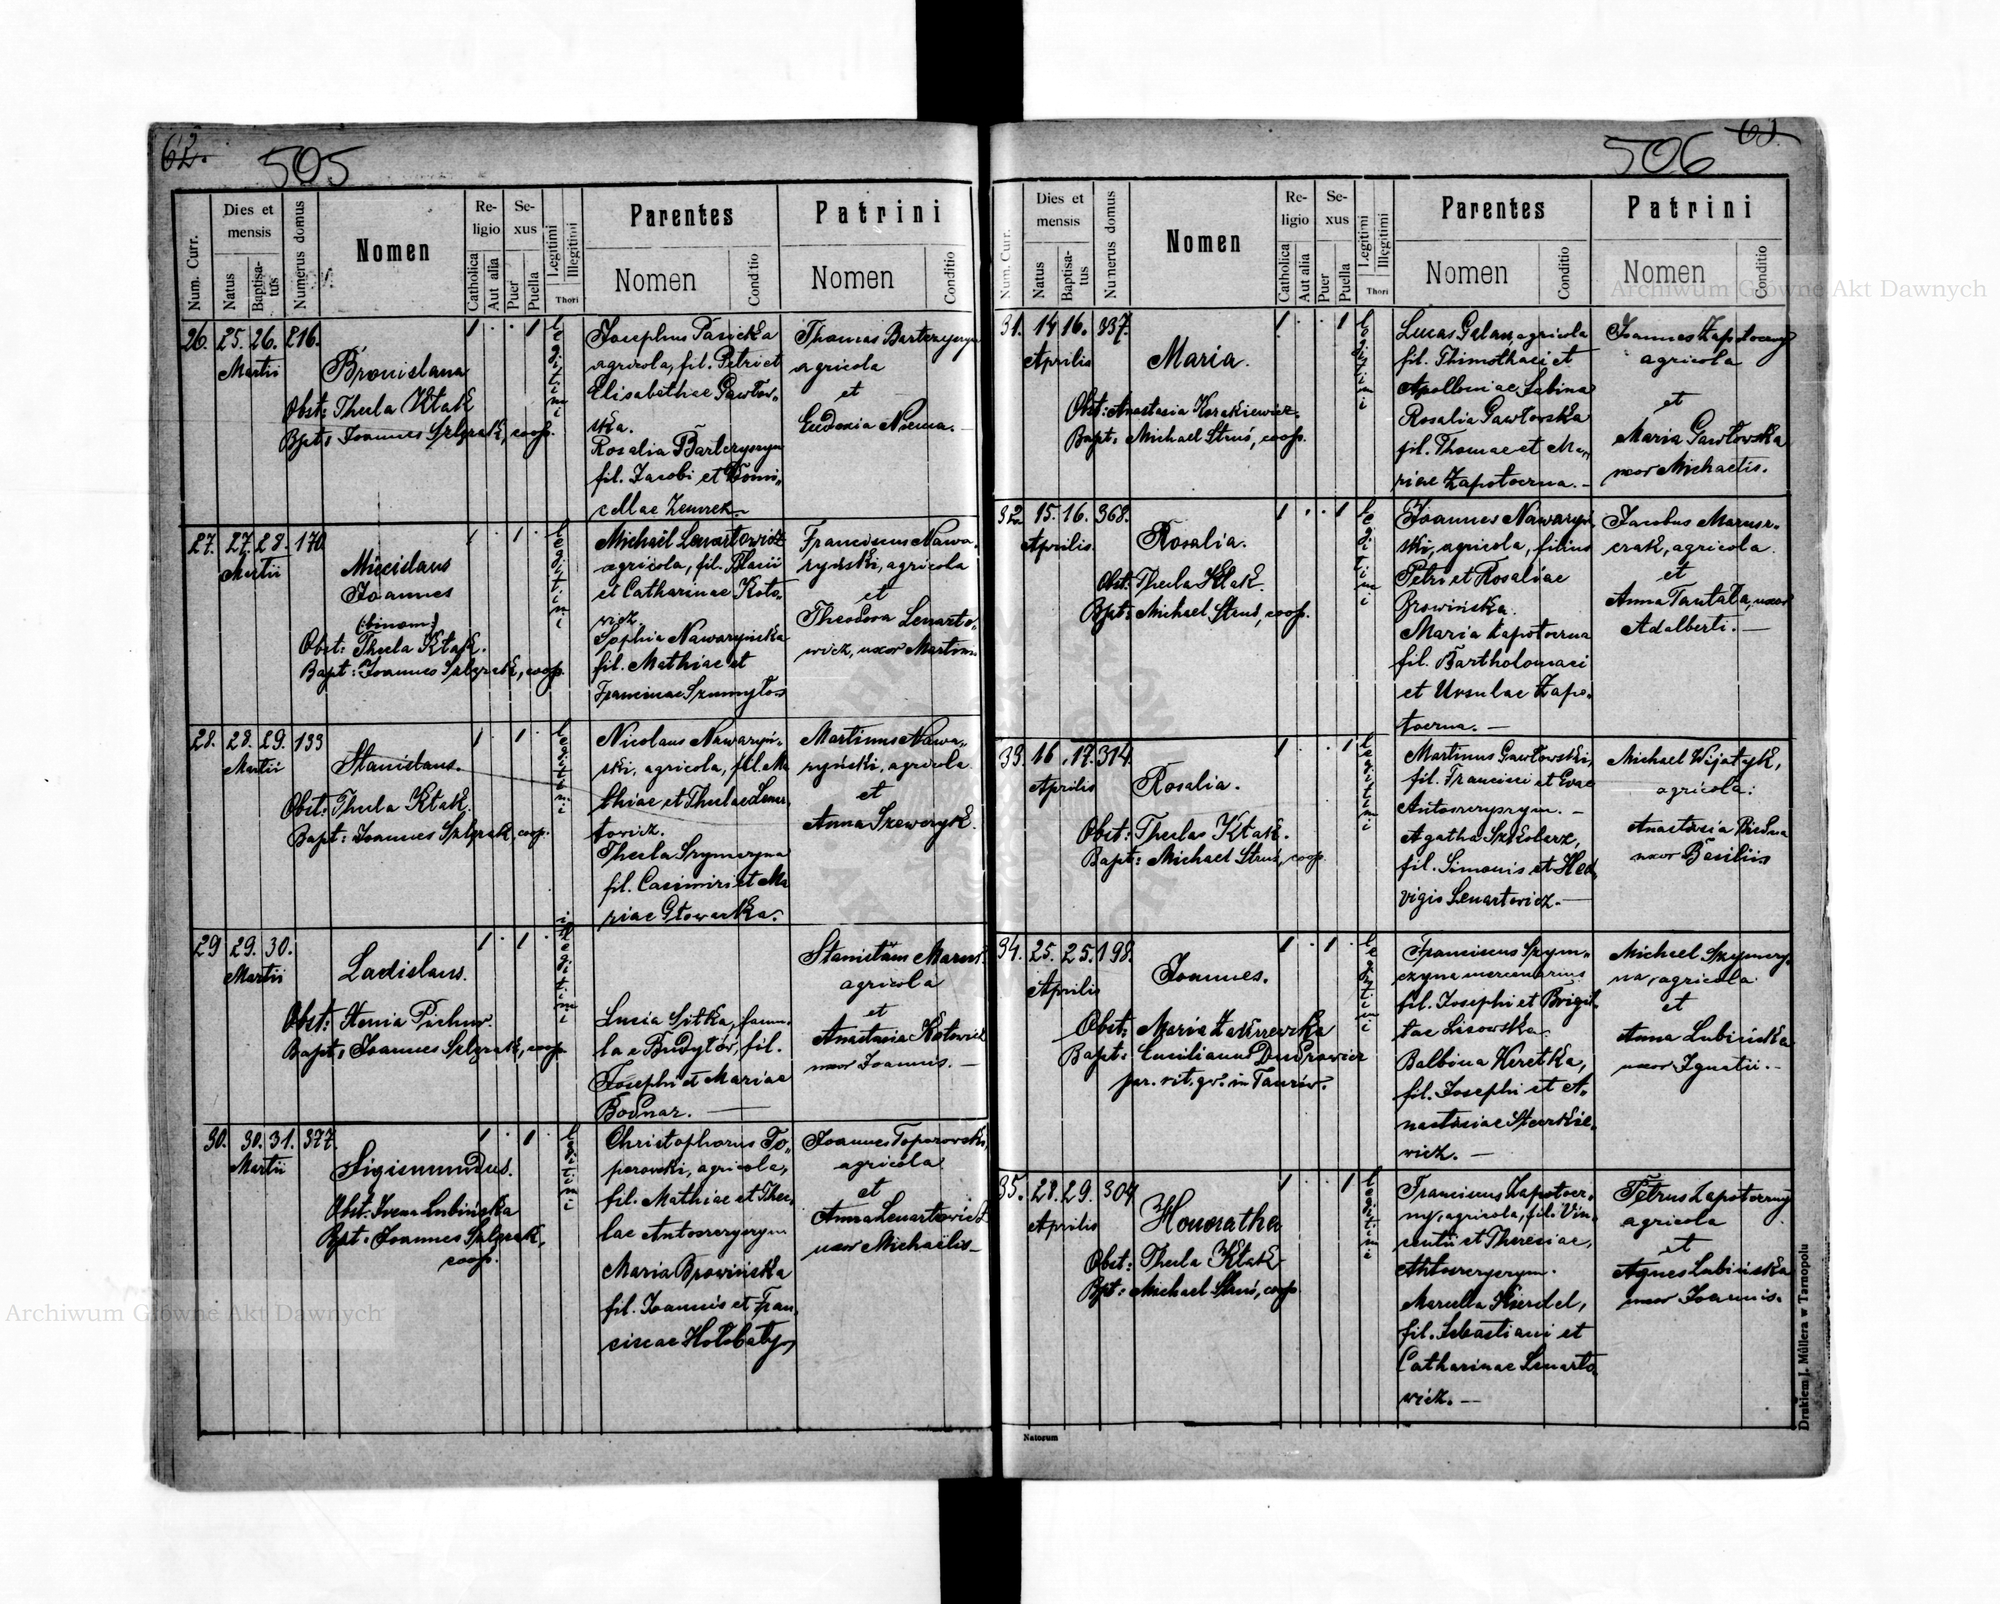 62.
505
Num. Curr.
Dies et mensis
Natus
Baptisatus
Numerus domus
Nomen
Religio
Catholica
Aut alia
Sexus
Puer
Puella
Legitimi
Illegitimi
Thori
Parentes
Nomen
Conditio
Patrini
Nomen
Conditio
26. 25. 26. 216.
Martii
Bronislana
Obst: Thecla Kłak
Bpt: Joannes Szlęzak, coop.
legitimi
Josephus Pasicka
agricola, fil. Petri et
Elisabethae Gawłow„
ska.
Rosalia Bartczyszyn
fil. Jacobi et Domi„
cellae
Thomas Bartczyszyn
agricola
et
Eudoxia
27. 27. 28. 170
Martii
Miecislaus
Joannes
(binom:)
Obst: Thecla Kłak.
Bapt: Joannes Szlęzak, coop.
legitimi
Michaël Lenartowicz
agricola, fil. Blasii
et Catharinae Koto„
wicz.
Sophia Nawaryńska
fil. Mathiae et
Franciscae
Franciscus Nawa„
ryński, agricola
et
Theodora Lenarto„
wicz, uxor Martini
28. 28. 29. 133
Martii
Stanislaus.
Obst: Thecla Kłak.
Bapt: Joannes Szlęzak, coop.
legitimi
Nicolaus Nawaryń„
ski, agricola, fil. Ma
thiae et Theclae Lenar
towicz.
Thecla Szymczyna
fil. Casimiri et Ma
riae Głowacka.
Martinus Nawa„
ryński, agricola
et
Anna Szewczyk.
29 29. 30.
Martii
Ladislaus.
Obst: Xenia
Bapt: Joannes Szlęzak, coop.
illegitimi
Lucia Sitka, famu„
la e Budyłów, fil.
Josephi et Mariae
Bodnar. —
agricola
et
Anastasia Kotowicz
uxor Joannis. —
30. 30. 31. 377.
Martii
Sigismundus.
Obst: Lubińska
Bpt: Joannes Szlęzak,
coop.
legitimi
Christophorus To„
porowski, agricola,
fil. Mathiae et Thec„
lae Antoszczyszyn
Maria Browińska
fil. Joannis et Fran„
ciscae Hołobaty,
Joannes Toporowski,
agricola
et
Anna Lenartowicz
uxor Michaëlis —
63.
506
Num. Curr.
Dies et mensis
Natus
Baptisatus
Numerus domus
Nomen
Religio
Catholica
Aut alia
Sexus
Puer
Puella
Legitimi
Illegitimi
Thori
Parentes
Nomen
Conditio
Patrini
Nomen
Conditio
31. 14 16. 337.
Aprilis
Maria.
Obst: Anastasia Korakiewicz.
Bapt: Michael Struś, coop.
legitimi
Lucas Galan, agricola
fil. Thimothaei et
Apolloniae Sabina
Rosalia Gawłowska
fil. Thomae et Ma„
riae Zapotoczna. —
Joannes Zapotoczny
agricola
et
Maria Gawłowska
uxor Michaelis.
32 15. 16. 368.
Aprilis
Rosalia.
Obst: Thecla Kłak.
Bpt: Michael Struś, coop.
legitimi
Joannes Nawaryń
ski, agricola, filius
Petri et Rosaliae
Browińska.
Maria Zapotoczna
fil. Bartholomaei
et Ursulae Zapo„
toczna. —
Jacobus Marusz„
czak, agricola.
et
Anna Tantała, uxor
Adalberti. —
33. 16. 17. 314.
Aprilis
Rosalia.
Obst: Thecla Kłak.
Bapt: Michael Struś, coop.
legitimi
Martinus Gawłowski,
fil. Francisci et Evae
Antoszczyszyn. —
Agatha Szkolarz,
fil. Simonis et Hed„
vigis Lenartowicz. —
Michael Wijatyk,
agricola:
Anastasia Biedna
uxor Basilii
34. 25. 25. 198.
Aprilis
Joannes.
Obst: Maria Zakrzewska
Bapt: Emilianus
par. rit. gr. in Taurów.
legitimi
Franciscus Szym„
czyna mercenarius
fil. Josephi et Brigit„
tae Lisowska
Balbina Keretka,
fil. Josephi et A„
nastasiae
wicz. —
Michael Szymczy„
na, agricola
et
Anna Lubińska
uxor Ignatii. —
35. 28. 29. 304
Aprilis
Honoratha
Obst: Thecla Kłak
Bpt: Michael Struś, coop.
legitimi
Franciscus Zapotocz„
ny, agricola, fil. Vin„
centii et Theresiae,
Antoszczyszyn.
Marcella Kierdel,
fil. Sebastiani et
Catharinae Lenarto
wicz. —
Petrus Zapotoczny
agricola
et
Agnes Lubińska
uxor Joannis.
Natorum
Drukiem J. Müllera w Tarnopolu
Archiwum Główne Akt Dawnych
Archiwum Główne Akt Dawnych